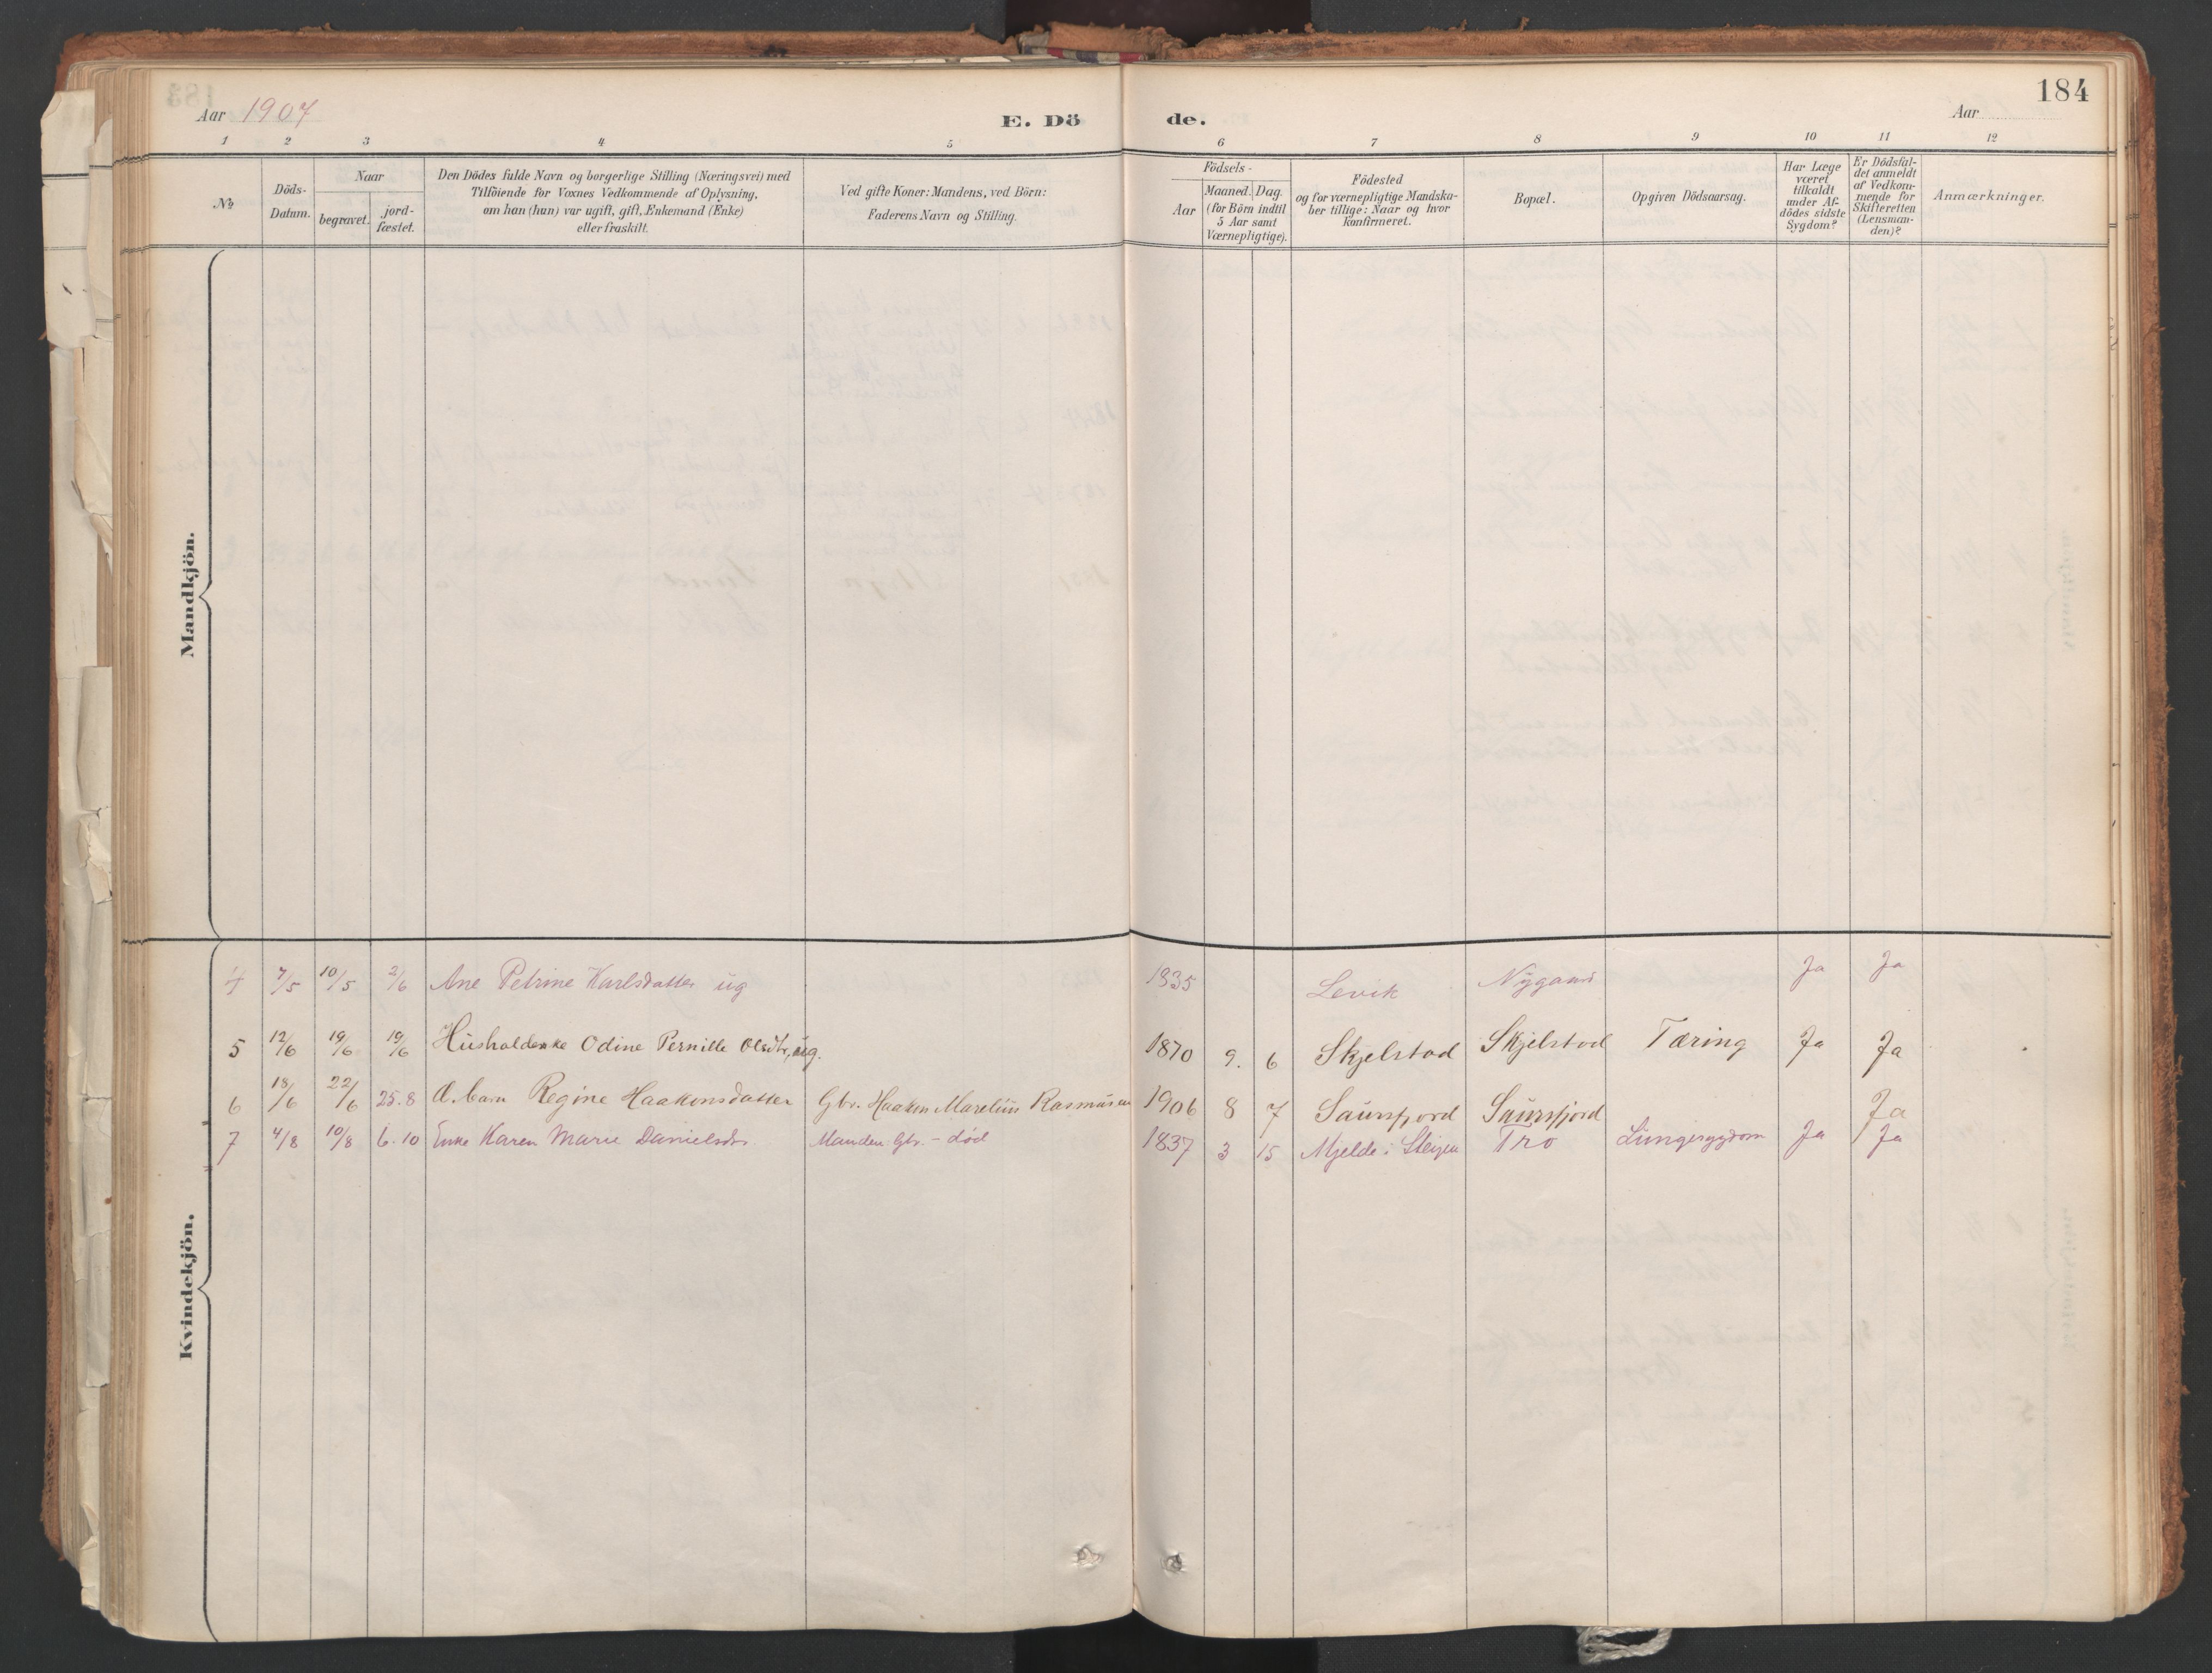 184
Aar 1907
E. Dö
de.
Aar
1 2 3 4 5 6 7 8 9 10 11 12
№
Döds-
Datum.
Naar
begravet.
jord-
fæstet.
Den Dödes fulde Navn og borgerlige Stilling (Næringsvei) med
Tilföiende for Voxnes Vedkommende af Oplysning,
om han (hun) var ugift, gift, Enkemand (Enke)
eller fraskilt.
Ved gifte Koner: Mandens, ved Börn:
Faderens Navn og Stilling.
Födsels-
Aar
Maaned. Dag.
(for Börn indtil
5 Aar samt
Værnepligtige).
Födested
og for værnepligtige Mandska-
ber tillige: Naar og hvor
konfirmeret.
Bopæl.
Opgiven Dödsaarsag.
Har Læge
været
tilkaldt
under Af-
dödes sidste
Sygdom?
Er Dödsfal-
det anmeldt
af Vedkom-
mende for
Skifteretten
(Lensman-
den)?
Anmærkninger.
Mandkjön.
Kvindekjön.
4 7/5 10/5 2/6 Ane Petrine Karlsdatter ug 1835 Levik Nygaard Ja Ja
5 12/6 19/6 19/6 Husholderske Odine Pernille Olsdtr, ug. 1870 9. 6 Skjelstad Skjelstad Tæring Ja Ja
6 18/6 22/6 25.8 Æ. barn Regine Haakonsdatter Gbr. Haakon Marelius Rasmussen 1906 8 7 Saursfjord Saursfjord Ja
7 4/8 10/8 6.10 Enke Karen Marie Danielsdr. Manden Gbr. - død 1837 3 15 Mjelde i Steigen Tro Lungesygdom Ja Ja